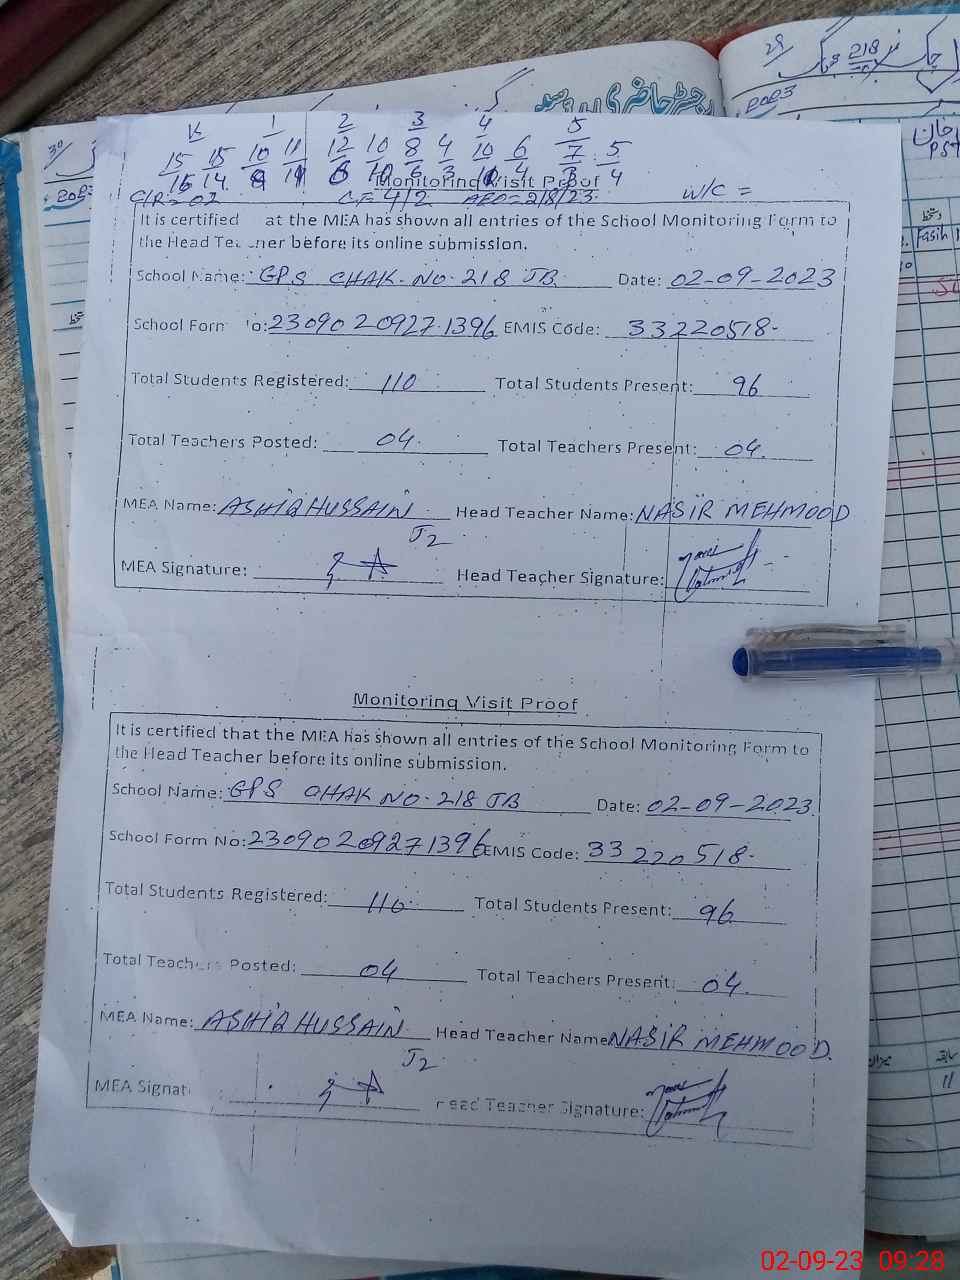 رجسٹر حاضری
218
2023
K 1 2 3 4 5
15 15 10 11 12 10 8 4 10 6 7 5
15 14 11 6 10 6 3 4 3 4
Monitoring Visit Proof
C/R = 02 C.F = 4/2 AEO = 2/8/23 W/C =
It is certified at the MEA has shown all entries of the School Monitoring Form to
the Head Te ner before its online submission.
School Name: GPS CHAK. NO. 218 JB Date: 02-09-2023
School Forn o: 23090209271396 EMIS Code: 33220518.
Total Students Registered: 110 Total Students Present: 96
Total Teachers Posted: 04. Total Teachers Present: 04.
MEA Name: ASHIQ HUSSAIN Head Teacher Name: NASIR MEHMOOD
J2
MEA Signature: Head Teacher Signature:
Monitoring Visit Proof
It is certified that the MEA has shown all entries of the School Monitoring Form to
the Head Teacher before its online submission.
School Name: GPS CHAK NO. 218 JB Date: 02-09-2023.
School Form No: 23090209271396 EMIS Code: 33220518.
Total Students Registered: 110 Total Students Present: 96
Total Teachers Posted: 04 Total Teachers Present: 04.
MEA Name: ASHIQ HUSSAIN Head Teacher Name NASIR MEHMOOD.
J2
MEA Signat ead Teacher Signature:
02-09-23 09:28